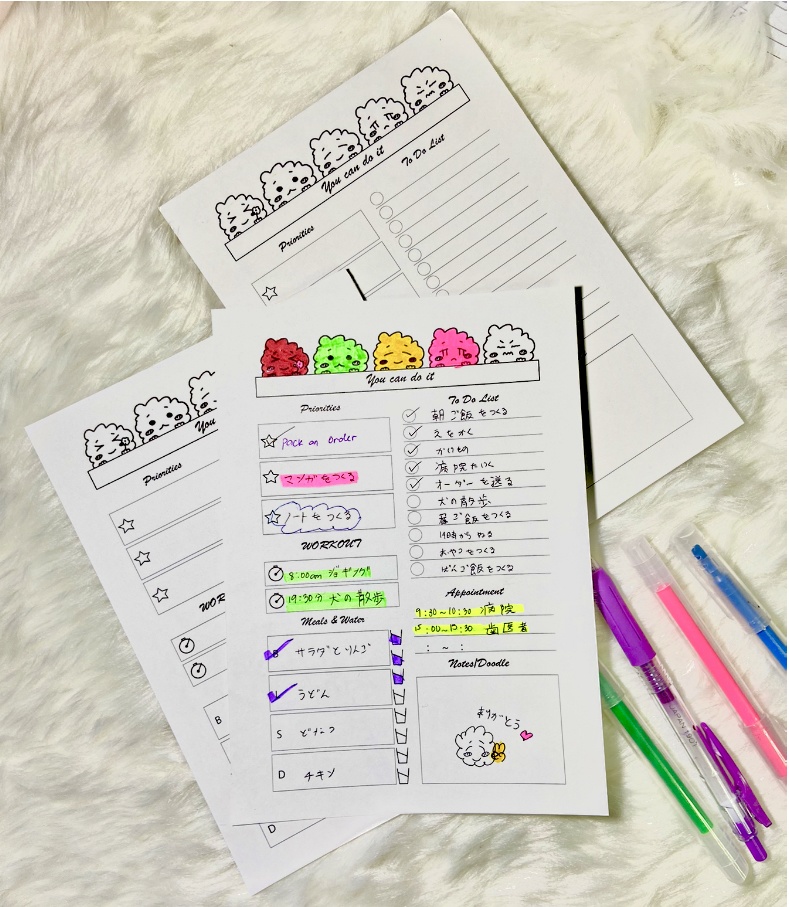 You can do it
To Do List
Priorities
You can do it
Priorities
Pack an Order
マンガをつくる
ノートをつくる
WORKOUT
8:00am ジョギング
19:30分 犬の散歩
Meals & Water
B サラダとりんご
L うどん
S
D チキン
To Do List
朝ご飯をつくる
えをかく
かいもの
病院たいく
オーダーを送る
犬の散歩
昼ご飯をつくる
おやつをつくる
ばんご飯をつくる
Appointment
9:30~10:30 病院
15:00~15:30 歯医者
: ~ :
Notes/Doodle
ありがとう
You
Priorities
WOR
B
D